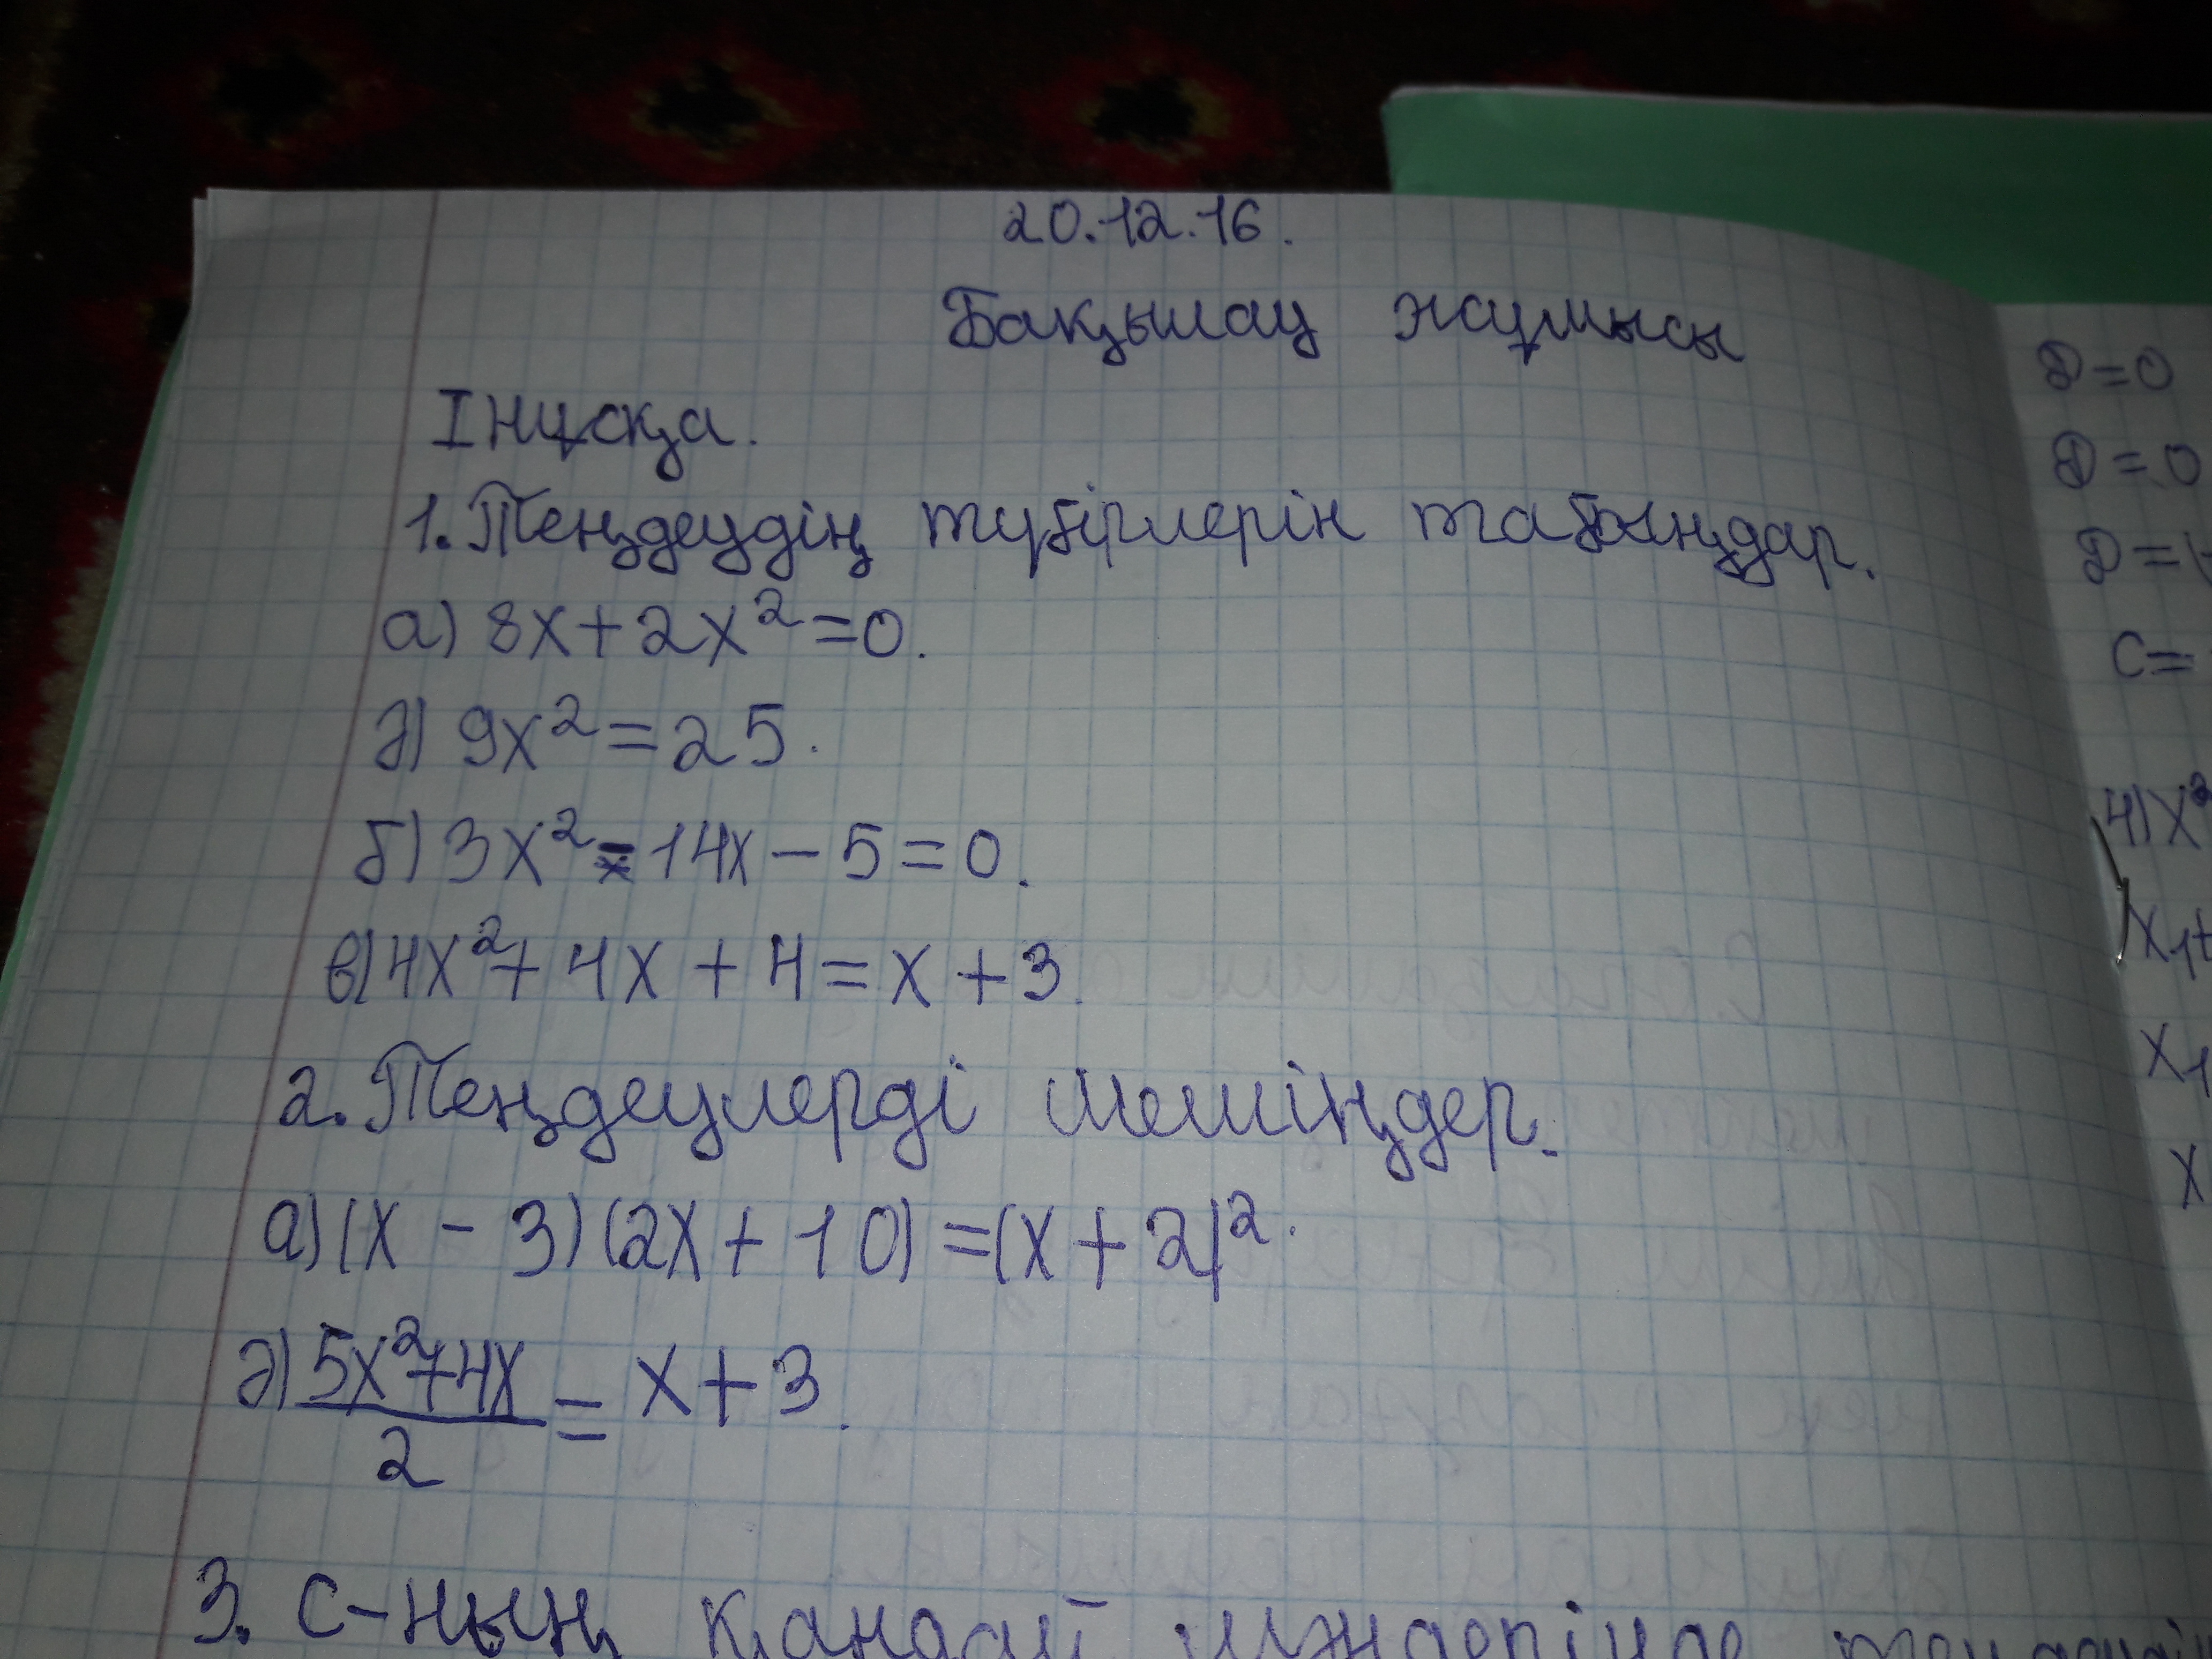 20.12.16.
Бақылау жұмысы
I нұсқа.
1. Теңдеудің түбірлерін табыңдар.
а) 8x+2x²=0.
ә) 9x²=25.
б) 3x²-14x-5=0.
в) 4x²+4x+4=x+3.
2. Теңдеулерді шешіңдер.
а) (x-3)(2x+10)=(x+2)².
ә) (5x²+4x)/2=x+3.
3. С-ның қандай мәндерінде
D=0
D=0
D=
C=
4) x²
x₁+
x₁
x